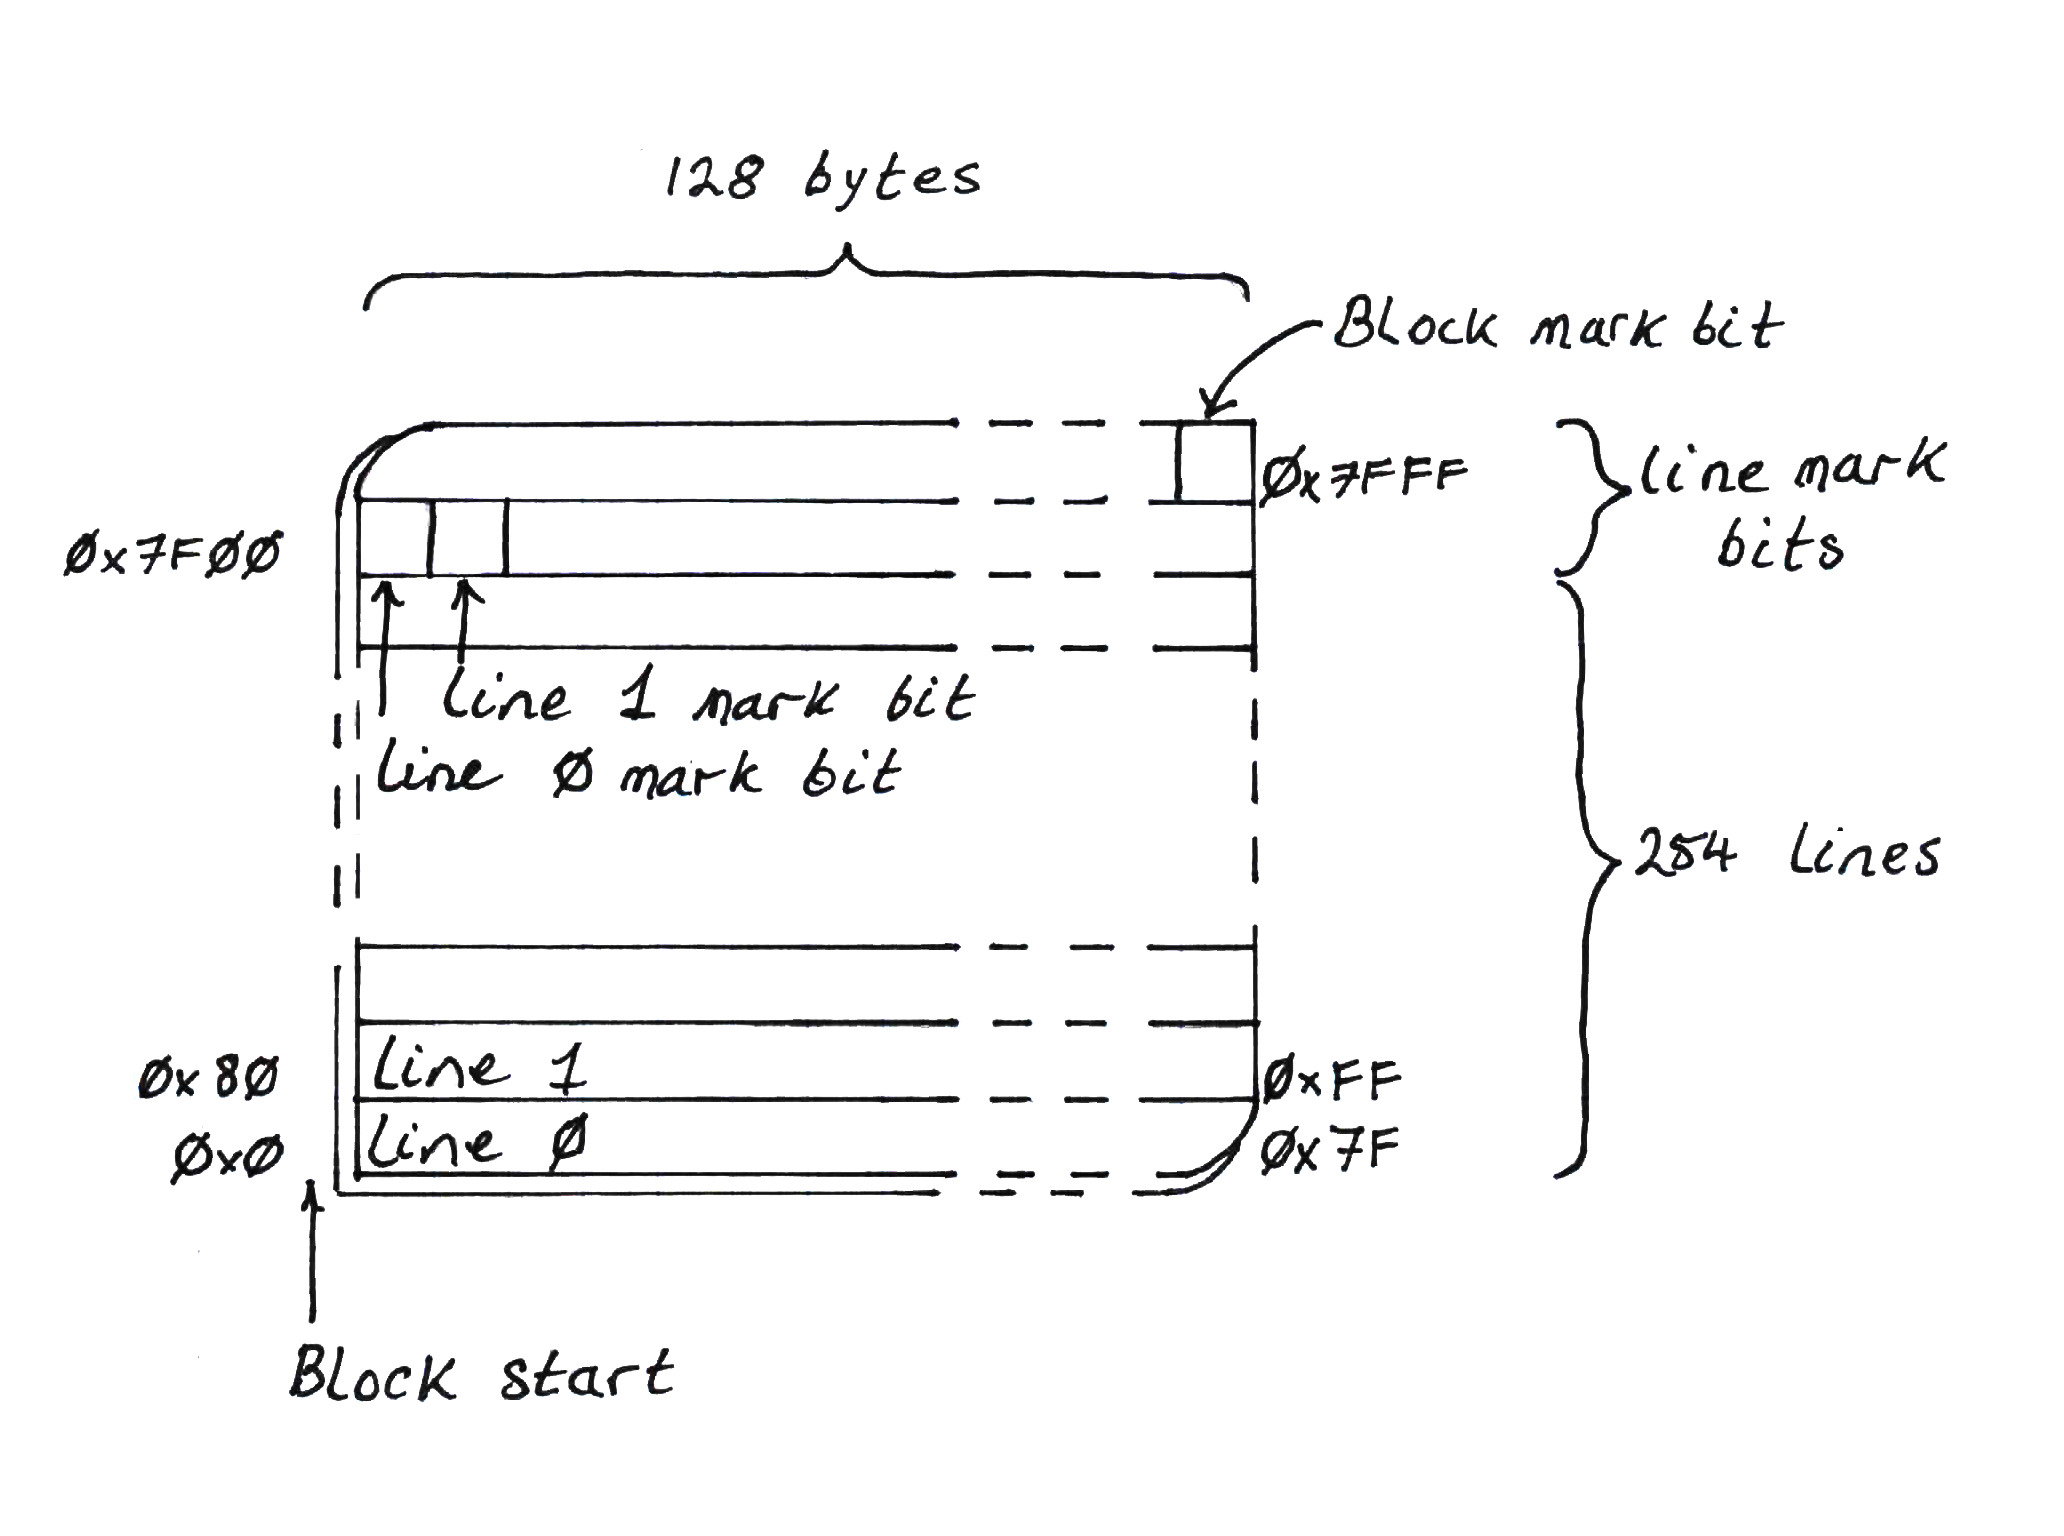 128 bytes
Block mark bit
0x7FFF
line mark
bits
0x7F00
line 1 mark bit
line 0 mark bit
254 lines
0x80
Line 1
0xFF
0x0
Line 0
0x7F
Block start